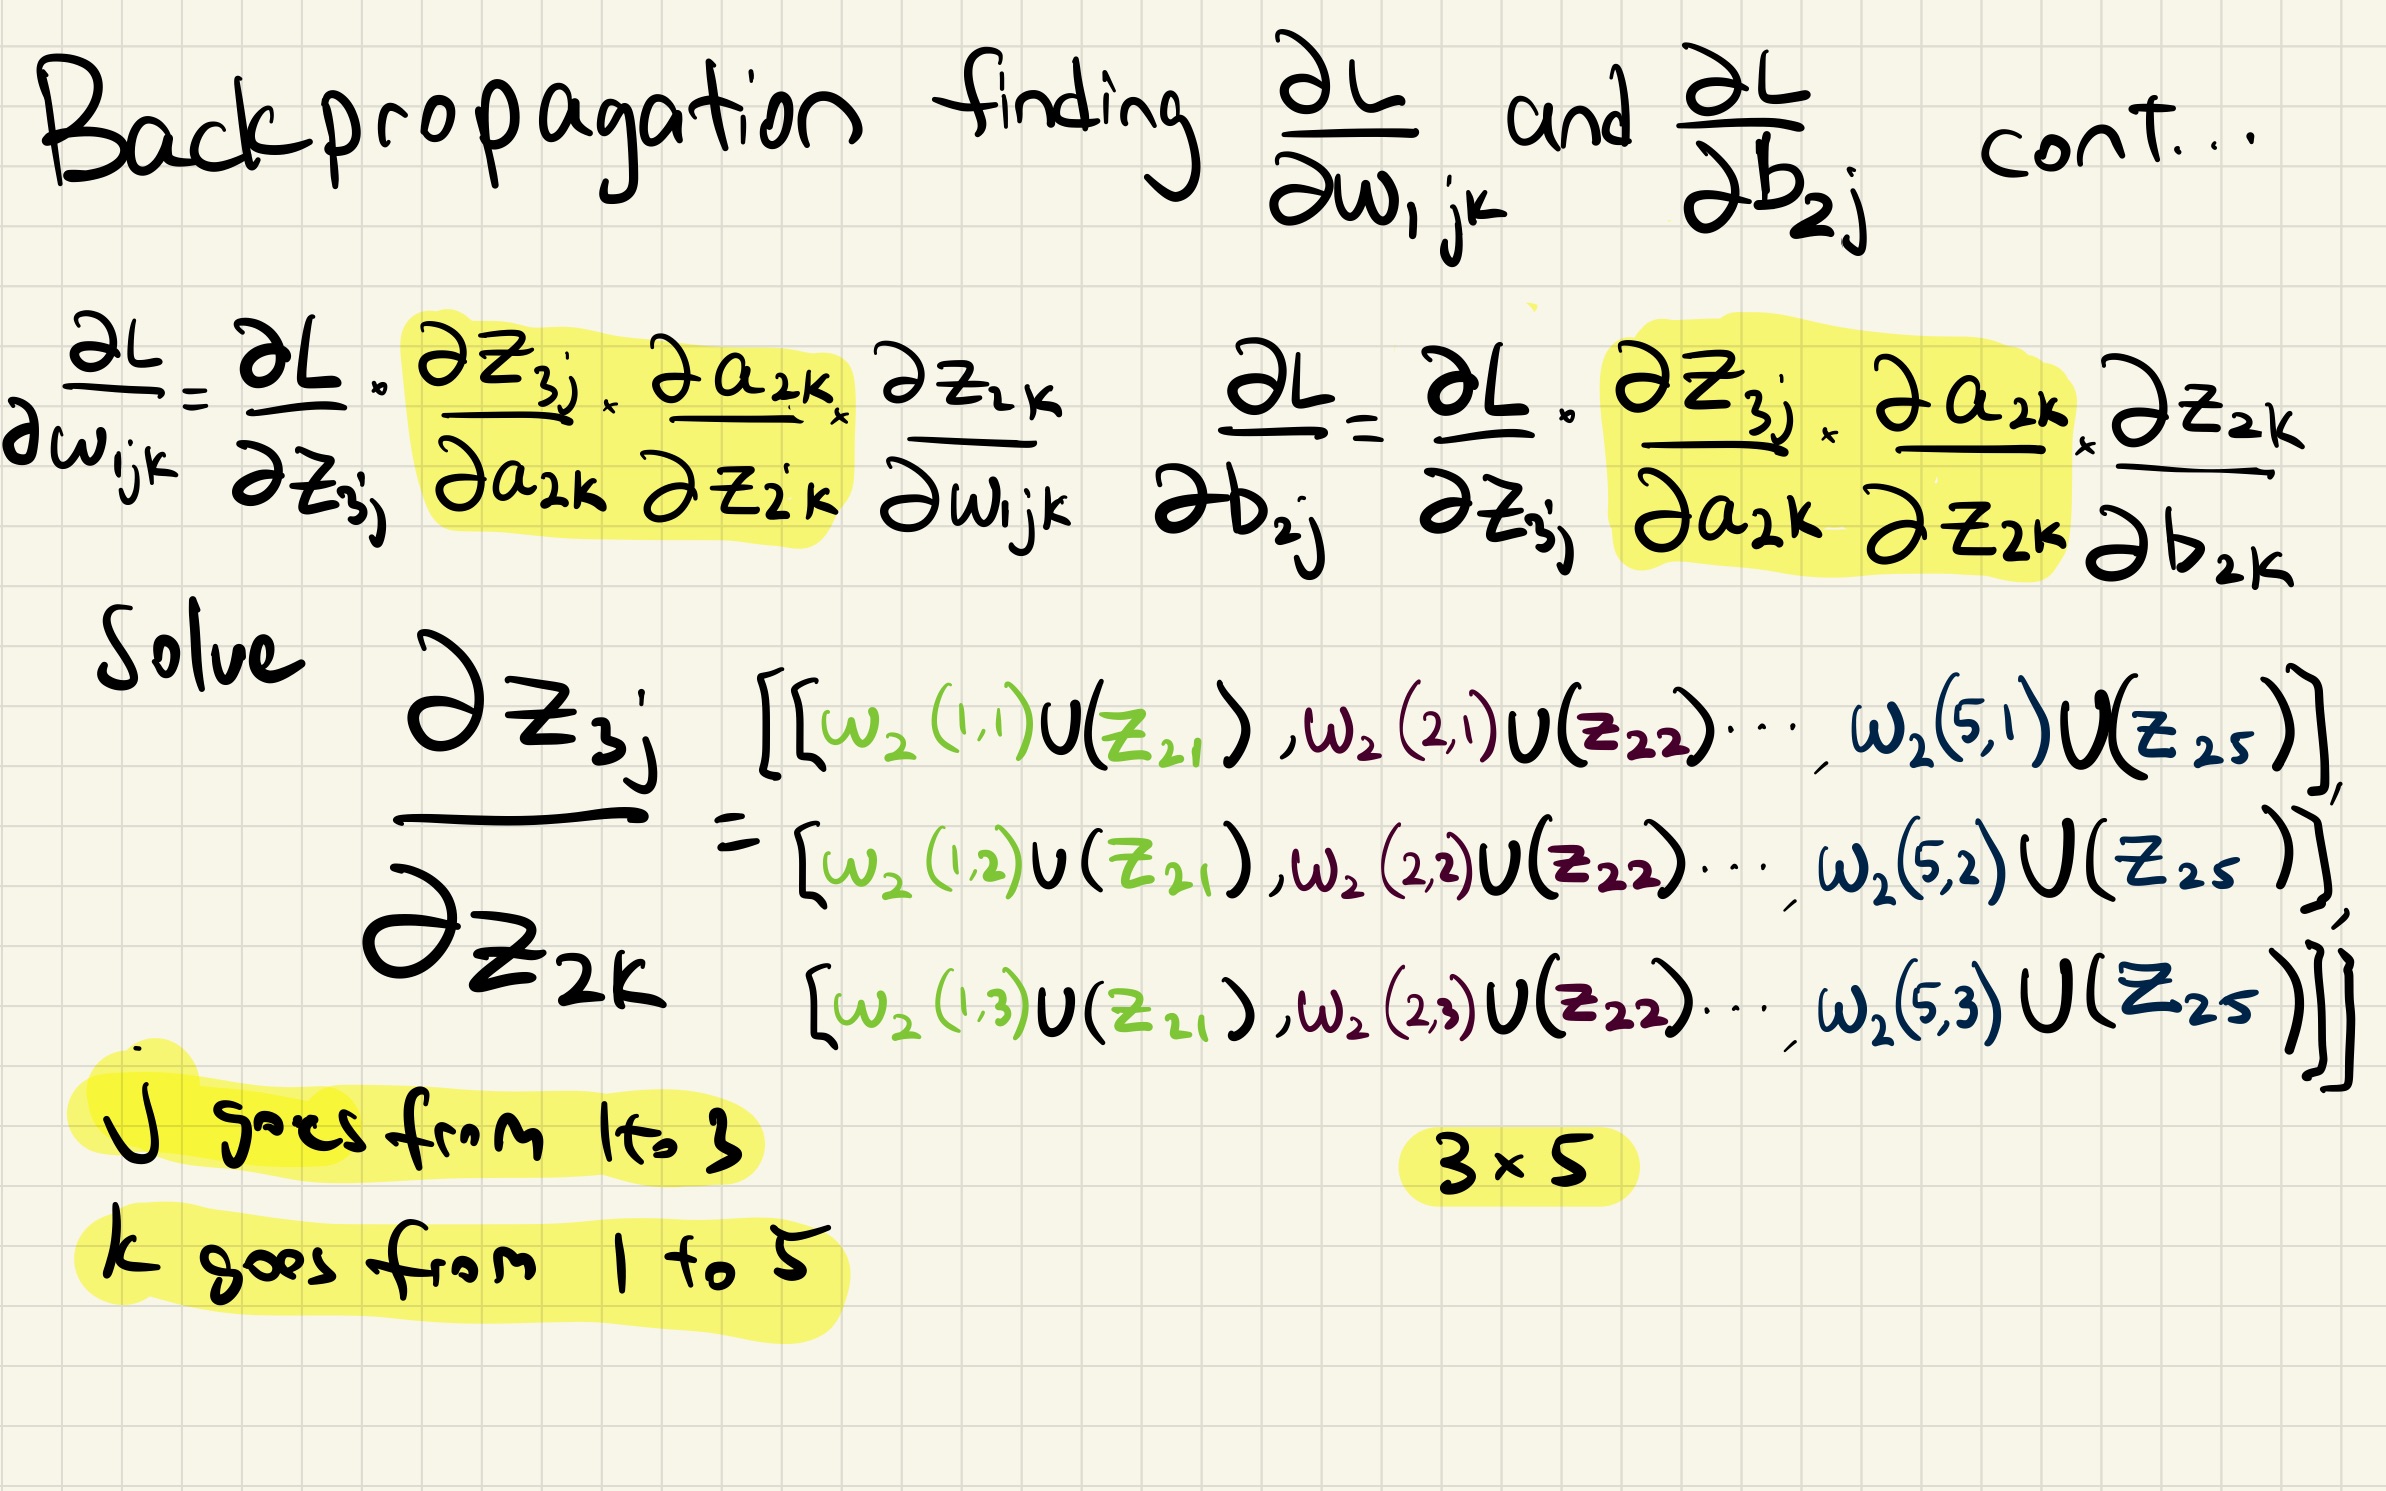 Backpropagation finding ∂L/∂w₁jk and ∂L/∂b₂j cont...
∂L/∂w₁jk = ∂L/∂z₃j · ∂z₃j/∂a₂k × ∂a₂k/∂z₂k × ∂z₂k/∂w₁jk   ∂L/∂b₂j = ∂L/∂z₃j · ∂z₃j/∂a₂k × ∂a₂k/∂z₂k × ∂z₂k/∂b₂k
Solve
∂z₃j/∂z₂k = [[w₂(1,1)U(z₂₁), w₂(2,1)U(z₂₂)..., w₂(5,1)U(z₂₅)],
[w₂(1,2)U(z₂₁), w₂(2,2)U(z₂₂)..., w₂(5,2)U(z₂₅)],
[w₂(1,3)U(z₂₁), w₂(2,3)U(z₂₂)..., w₂(5,3)U(z₂₅)]]
j goes from 1 to 3
3 × 5
k goes from 1 to 5